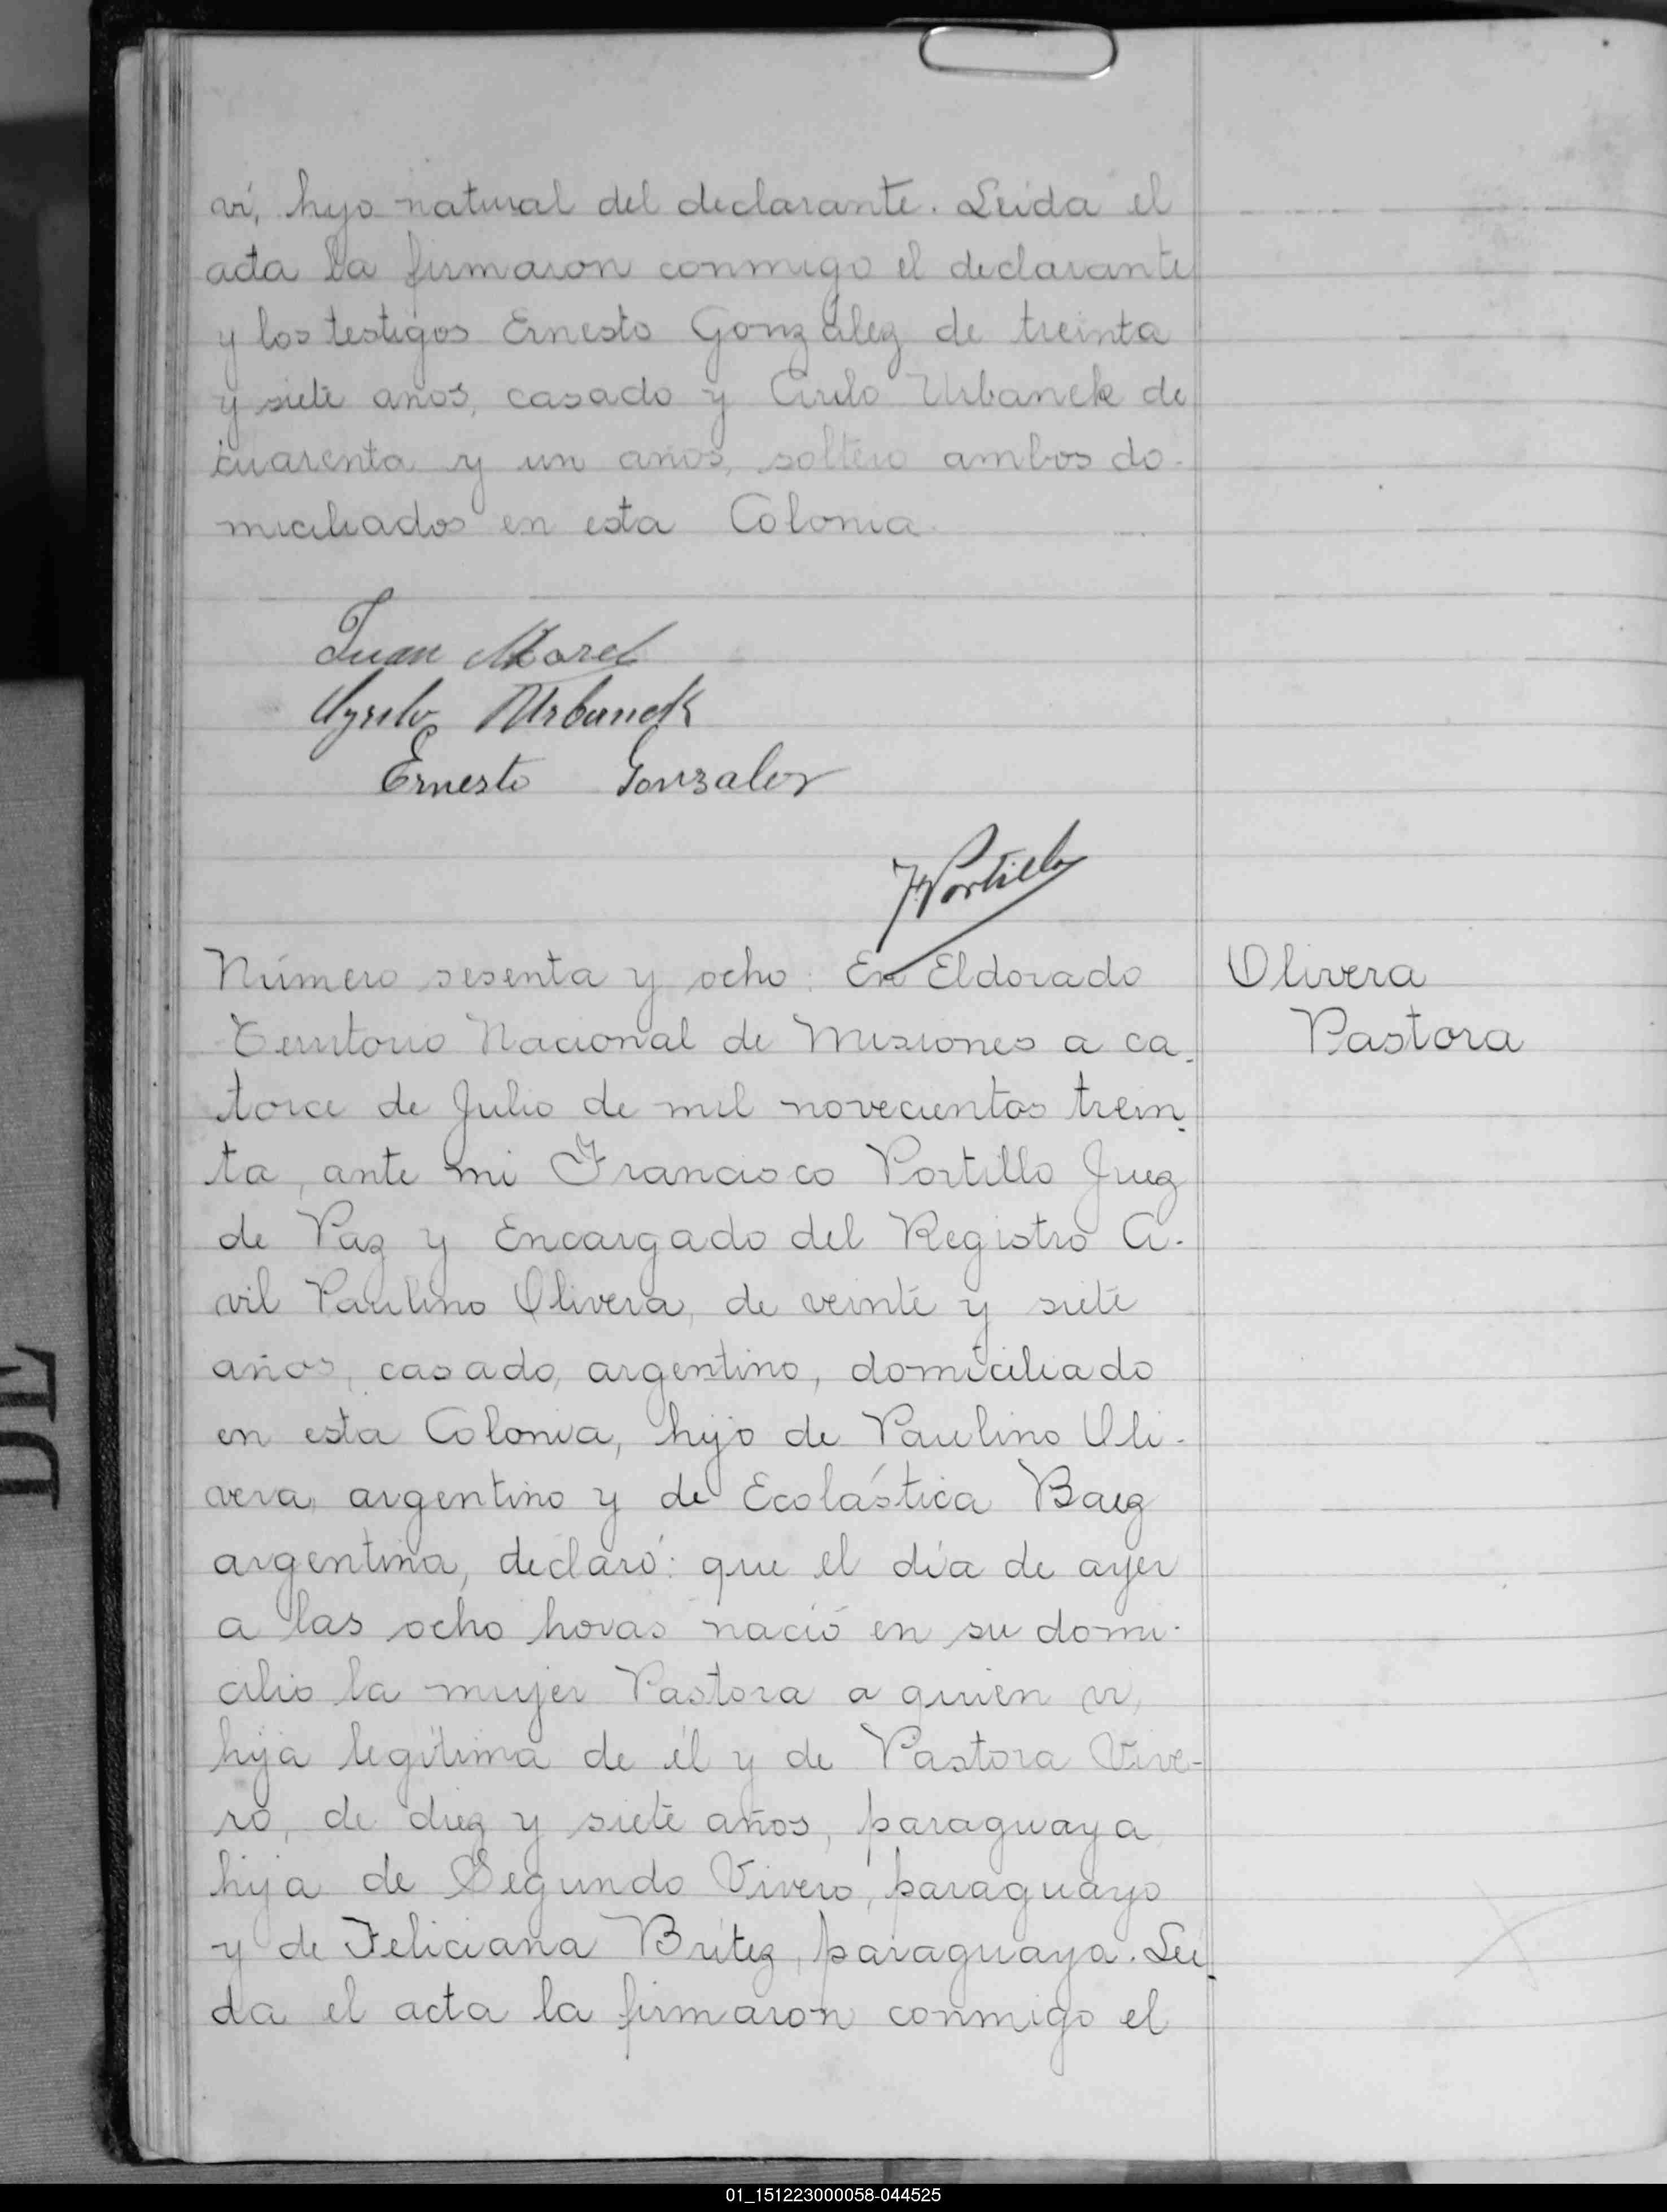 vi, hijo natural del declarante. Leida el
acta la firmaron conmigo el declarante
y los testigos Ernesto González de treinta
y siete años, casado y Cirilo Urbanek de
cuarenta y un años, soltero ambos do-
miciliados en esta Colonia.
Juan Morel
Cyrilo Urbanek
Ernesto Gonzalez
F Portillo
Número sesenta y ocho: En Eldorado
Olivera
Territorio Nacional de Misiones a ca-
Pastora
torce de Julio de mil novecientos trein-
ta, ante mi Francisco Portillo Juez
de Paz y Encargado del Registro Ci-
vil Paulino Olivera, de veinte y siete
años, casado, argentino, domiciliado
en esta Colonia, hijo de Paulino Oli-
vera, argentino y de Ecolástica Baez
argentina, declaró: que el día de ayer
a las ocho horas nació en su domi-
cilio la mujer Pastora a quien vi,
hija legítima de él y de Pastora Vive-
ro, de diez y siete años, paraguaya
hija de Segundo Vivero, paraguayo
y de Feliciana Britez, paraguaya. Lei-
da el acta la firmaron conmigo el
DE
01_151223000058-044525